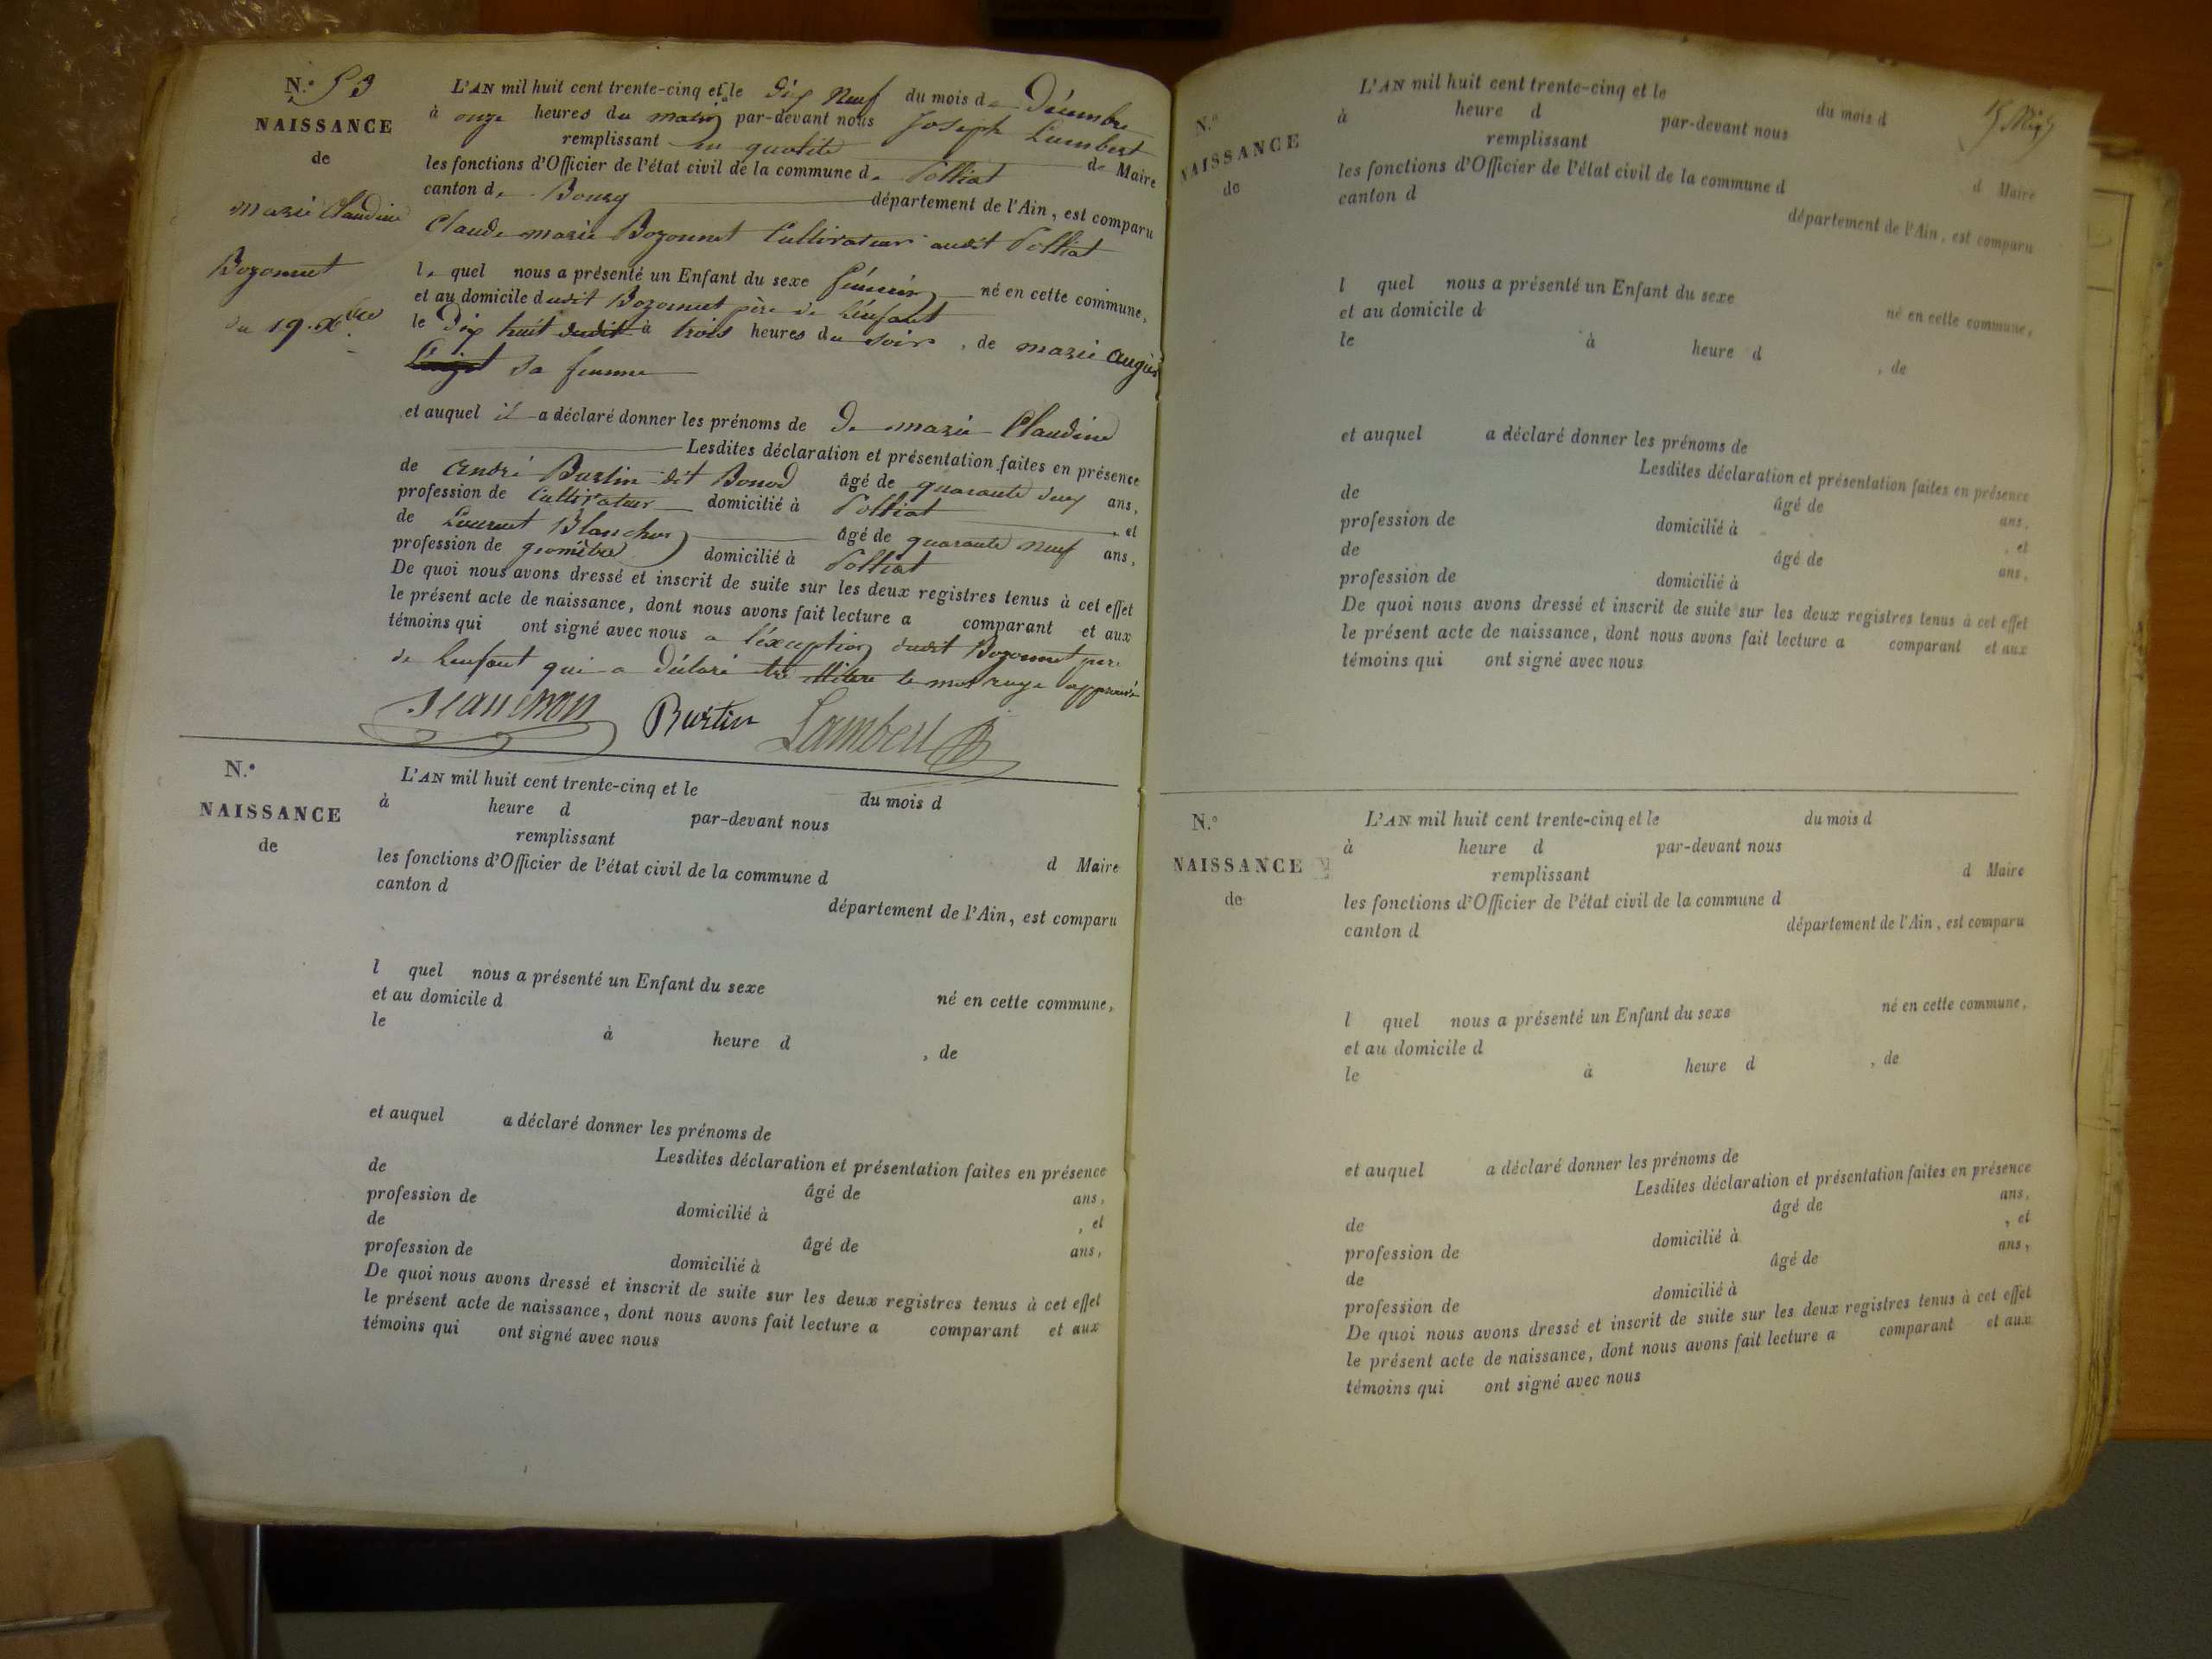 N.o 53
NAISSANCE
de
marie Claudine
Bozonnet
du 19. Xbre
L'AN mil huit cent trente-cinq et le dix Neuf du mois de Décembre
à onze heures du matin par-devant nous Joseph Lambert
remplissant en qualité de Maire
les fonctions d'Officier de l'état civil de la commune de Polliat
canton de Bourg département de l'Ain, est comparu
Claude marie Bozonnet Cultivateur audit Polliat
le quel nous a présenté un Enfant du sexe féminin né en cette commune,
et au domicile dudit Bozonnet père de l'enfant
le dix huit dudit à trois heures du soir, de marie
sa femme
et auquel il a déclaré donner les prénoms de De marie Claudine
Lesdites déclaration et présentation faites en présence
de andré Burtin dit Bonod âgé de quarante deux ans,
profession de Cultivateur domicilié à Polliat, et
de Laurent Blanchon âgé de quarante neuf ans,
profession de géomètre domicilié à Polliat
De quoi nous avons dressé et inscrit de suite sur les deux registres tenus à cet effet
le présent acte de naissance, dont nous avons fait lecture a comparant et aux
témoins qui ont signé avec nous a l'éxception dudit Bozonnet père
de l'enfant qui a déclaré le mot rayé approuvé
Burtin Lambert
N.o
NAISSANCE
de
L'AN mil huit cent trente-cinq et le du mois d
à heure d par-devant nous
remplissant d Maire
les fonctions d'Officier de l'état civil de la commune d
canton d département de l'Ain, est comparu
l quel nous a présenté un Enfant du sexe né en cette commune,
et au domicile d
le à heure d , de
et auquel a déclaré donner les prénoms de
Lesdites déclaration et présentation faites en présence
de âgé de ans,
profession de domicilié à , et
de âgé de ans,
profession de domicilié à
De quoi nous avons dressé et inscrit de suite sur les deux registres tenus à cet effet
le présent acte de naissance, dont nous avons fait lecture a comparant et aux
témoins qui ont signé avec nous
N.o
NAISSANCE
de
L'AN mil huit cent trente-cinq et le du mois d
à heure d par-devant nous
remplissant d Maire
les fonctions d'Officier de l'état civil de la commune d
canton d département de l'Ain, est comparu
l quel nous a présenté un Enfant du sexe né en cette commune,
et au domicile d
le à heure d , de
et auquel a déclaré donner les prénoms de
Lesdites déclaration et présentation faites en présence
de âgé de ans,
profession de domicilié à , et
de âgé de ans,
profession de domicilié à
De quoi nous avons dressé et inscrit de suite sur les deux registres tenus à cet effet
le présent acte de naissance, dont nous avons fait lecture a comparant et aux
témoins qui ont signé avec nous
N.o
NAISSANCE
de
L'AN mil huit cent trente-cinq et le du mois d
à heure d par-devant nous
remplissant d Maire
les fonctions d'Officier de l'état civil de la commune d
canton d département de l'Ain, est comparu
l quel nous a présenté un Enfant du sexe né en cette commune,
et au domicile d
le à heure d , de
et auquel a déclaré donner les prénoms de
Lesdites déclaration et présentation faites en présence
de âgé de ans,
profession de domicilié à , et
de âgé de ans,
profession de domicilié à
De quoi nous avons dressé et inscrit de suite sur les deux registres tenus à cet effet
le présent acte de naissance, dont nous avons fait lecture a comparant et aux
témoins qui ont signé avec nous